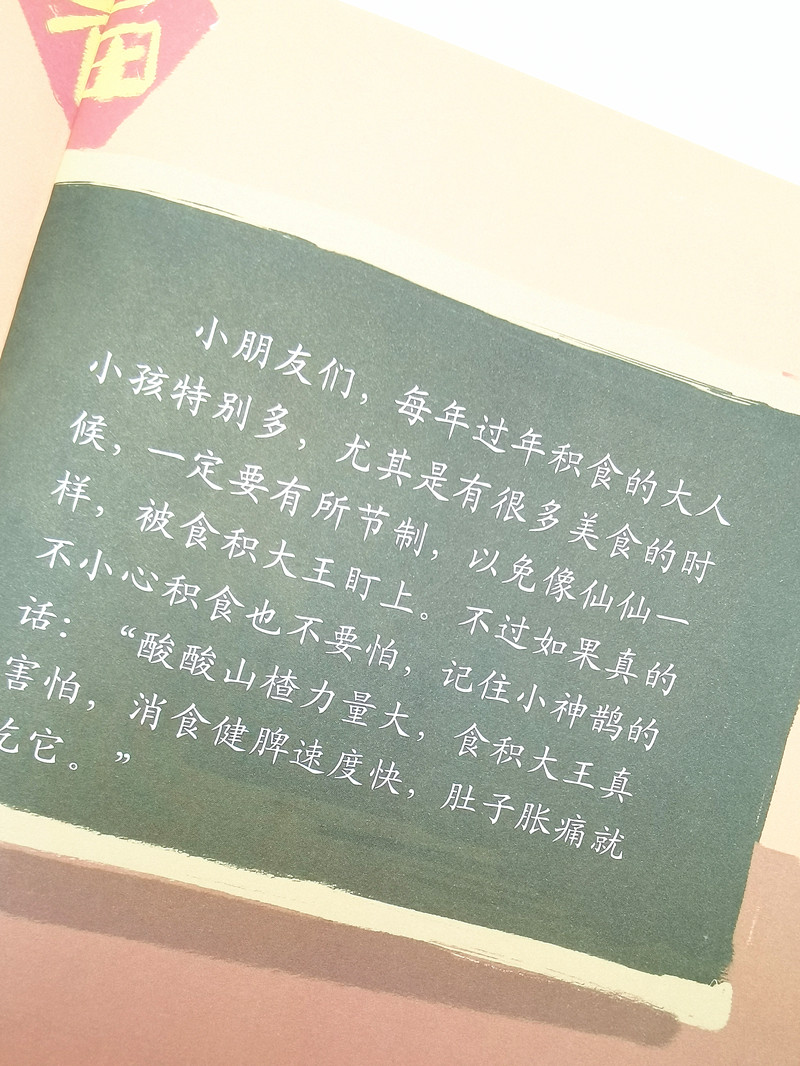 小朋友们，每年过年积食的大人
小孩特别多，尤其是有很多美食的时
候，一定要有所节制，以免像仙仙一
样，被食积大王盯上。不过如果真的
不小心积食也不要怕，记住小神鹊的
话：“酸酸山楂力量大，食积大王真
害怕，消食健脾速度快，肚子胀痛就
吃它。”